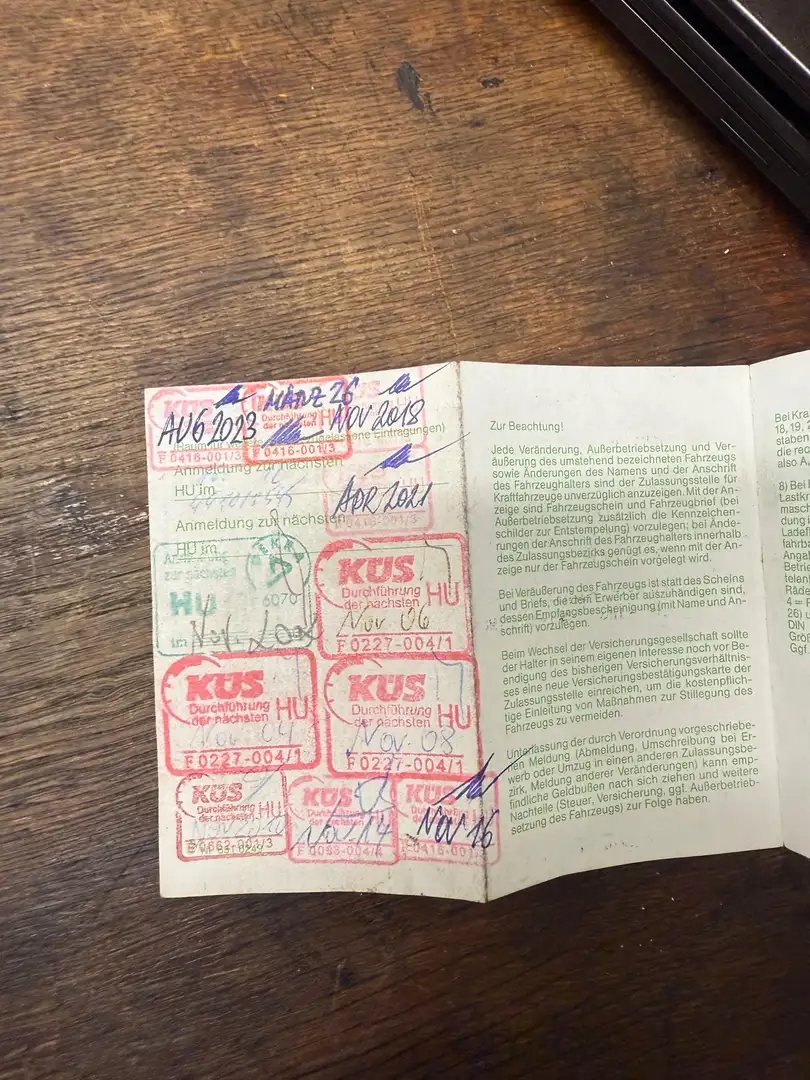 KÜS
MÄRZ 26
KÜS
AUG 2023
Durchführung
der nächsten
NOV 2018
F 0416-001/3
F 0416-001/3
Anmeldung zur nächsten
HU im
APR 2021
Anmeldung zur nächsten
HU im
DEKRA
zur nächsten
HU
6070
im Nov.
KÜS
Durchführung
der nächsten HU
Nov 06
F 0227-004/1
KÜS
Durchführung
der nächsten HU
Nov 04
F 0227-004/1
KÜS
Durchführung
der nächsten HU
Nov. 08
F 0227-004/1
KÜS
Durchführung
der nächsten HU
KÜS
Nov 14
F 0098-004/4
KÜS
NOV 16
F 0416-001/3
Zur Beachtung!
Jede Veränderung, Außerbetriebsetzung und Ver-
äußerung des umstehend bezeichneten Fahrzeugs
sowie Änderungen des Namens und der Anschrift
des Fahrzeughalters sind der Zulassungsstelle für
Kraftfahrzeuge unverzüglich anzuzeigen. Mit der An-
zeige sind Fahrzeugschein und Fahrzeugbrief (bei
Außerbetriebsetzung zusätzlich die Kennzeichen-
schilder zur Entstempelung) vorzulegen; bei Ände-
rungen der Anschrift des Fahrzeughalters innerhalb
des Zulassungsbezirks genügt es, wenn mit der An-
zeige nur der Fahrzeugschein vorgelegt wird.
Bei Veräußerung des Fahrzeugs ist statt des Scheins
und Briefs, die dem Erwerber auszuhändigen sind,
dessen Empfangsbescheinigung (mit Name und An-
schrift) vorzulegen.
Beim Wechsel der Versicherungsgesellschaft sollte
der Halter in seinem eigenen Interesse noch vor Be-
endigung des bisherigen Versicherungsverhältnis-
ses eine neue Versicherungsbestätigungskarte der
Zulassungsstelle einreichen, um die kostenpflich-
tige Einleitung von Maßnahmen zur Stillegung des
Fahrzeugs zu vermeiden.
Unterlassung der durch Verordnung vorgeschriebe-
nen Meldung (Abmeldung, Umschreibung bei Er-
werb oder Umzug in einen anderen Zulassungsbe-
zirk, Meldung anderer Veränderungen) kann emp-
findliche Geldbußen nach sich ziehen und weitere
Nachteile (Steuer, Versicherung, ggf. Außerbetrieb-
setzung des Fahrzeugs) zur Folge haben.
Bei Kra
18, 19, 2
staben
die rec
also A,
8) Bei
Lastk
masch
dung
Ladefl
fahrba
Angab
Betrie
telen
Räde
4 =
26) u
DIN
Größ
Ggf.